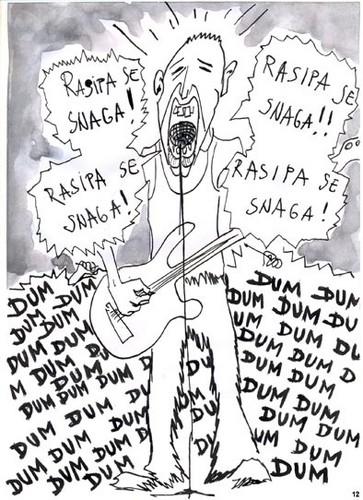 RASIPA SE
SNAGA!
RASIPA SE
SNAGA!!
RASIPA SE
SNAGA!
RASIPA SE
SNAGA!
DUM DUM
DUM DUM
DUM DUM
M DUM DUM
DUM DUM DUM
DUM DUM DUM
DUM DUM DUM
DUM DUM DUM
DUM DUM
DUM DUM DU
UM DUM DU
DUM DUM
DUM DUM D
DUM DUM
DUM DUM
UM DUM
DUM
12